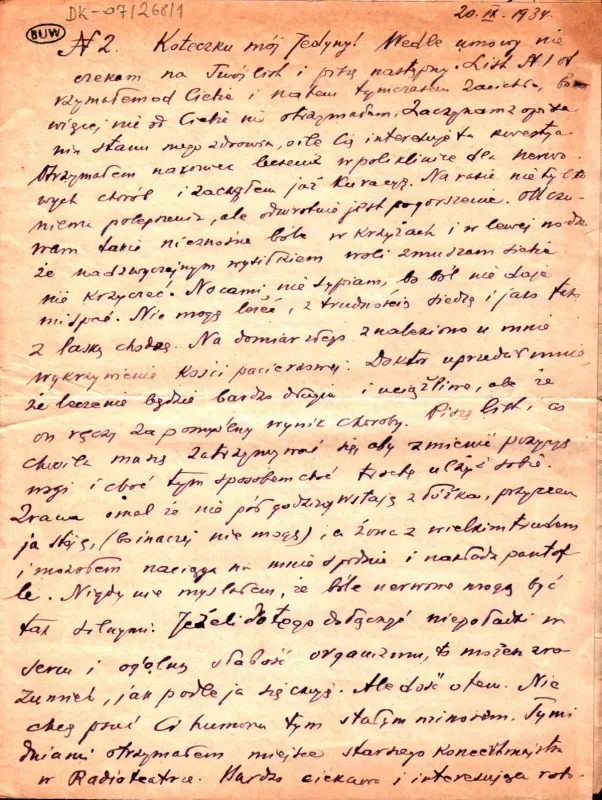 DK-07/268/1
20. IX. 1934.
BUW
N 2. Koteczku mój Jedyny! Wedle umowy nie
czekam na Twój list i piszę następny. List N.1 ot
rzymałem od Ciebie i na tem tymczasem zacichło, bo
więcej nic od Ciebie nie otrzymałem. Zaczynam z opisa
nia stanu mego zdrowia, o ile Cię interesuje ta kwestja.
Otrzymałem nakoniec leczenie w poliklinice dla nerwo
wych chorób i zacząłem już kurację. Na razie nie tylko
niema polepszenia, ale odwrotnie jest pogorszenie. Odczu
wam takie nieznośne bóle w krzyżach i w lewej nodze
że nadzwyczajnym wysiłkiem woli zmuszam siebie
nie krzyczeć. Nocami nie sypiam, bo ból nie daje
mi spać. Nie mogę leżeć, z trudnością siedzę i jako tako
z laską chodzę. Na domiar złego znaleziono u mnie
wykrzywienie kości pacierzowej. Doktór uprzedził mnie,
że leczenie będzie bardzo długie i uciążliwe, ale że
on ręczy za pomyślny wynik choroby. Piszę list, i co
chwila muszę zatrzymywać się, aby zmienić pozycję
nogi i choć tym sposobem choć trochę ulżyć sobie.
Zrana omal że nie pół godziny wstaję z łóżka, przyczem
ja stoję, (bo inaczej nie mogę), a żona z wielkim trudem
i mozołem naciąga na mnie spodnie i nakłada pantof
le. Nigdy nie myślałem, że bóle nerwowe mogą być
tak silnymi. Jeżeli do tego dołączyć nieporządki w
sercu i ogólną słabość organizmu, to możesz zro
zumieć, jak podle ja się czuję. Ale dość o tem. Nie
chcę psuć Ci humoru tym stałym minorem. Tymi
dniami otrzymałem miejsce starszego koncertmajstra
w Radioteatrze. Bardzo ciekawa i interesująca rob.